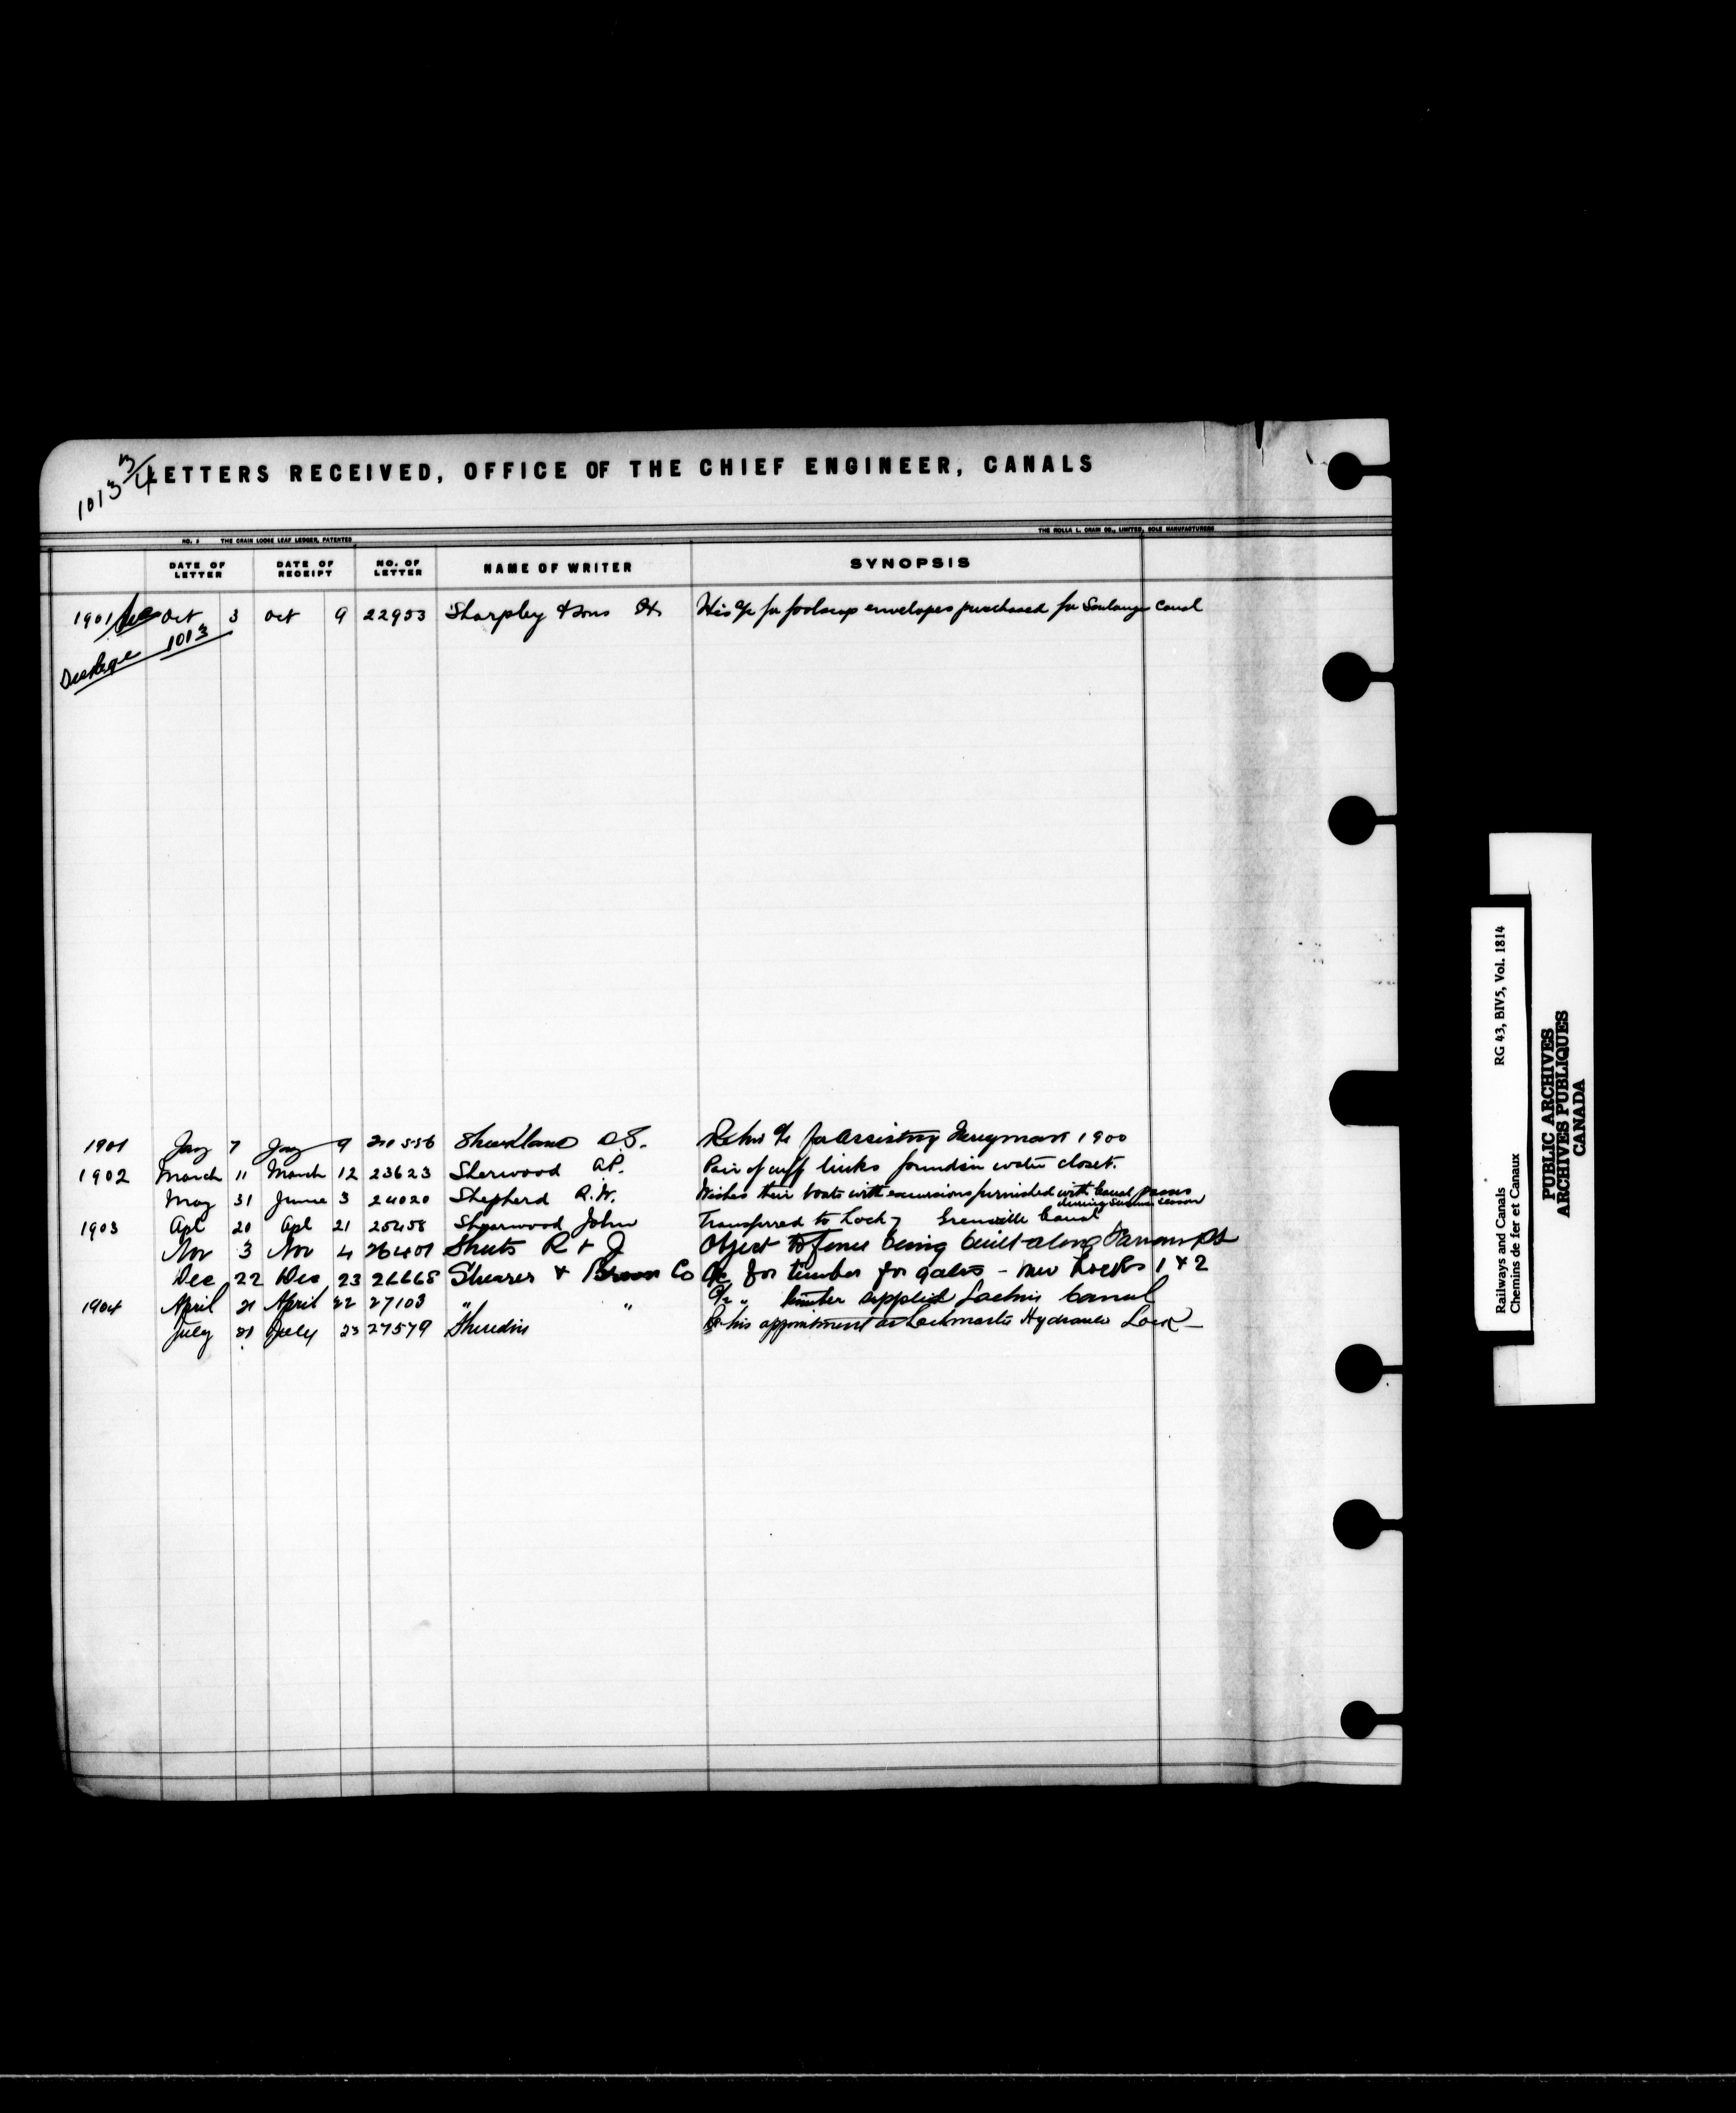 1013 3/4
LETTERS RECEIVED, OFFICE OF THE CHIEF ENGINEER, CANALS
THE ROLLA L. CRAIN CO., LIMITED, SOLE MANUFACTURERS
NO. 2 THE CRAIN LOOSE LEAF LEDGER, PATENTED
DATE OF LETTER DATE OF RECEIPT NO. OF LETTER NAME OF WRITER SYNOPSIS
1901 Oct 3 Oct 9 22953 Sharpley & Sons His a/c for foolscap envelopes purchased for Soulanges Canal
See Page 1013
1901 Jay 7 Jay 9 210556 Re his a/c for assisting 1900
1902 March 11 March 12 23623 Sherwood A.P. Pair of cuff links found in water closet.
May 31 June 3 24020 Shepherd R.W. Wishes their boats with excursions furnished with Canal passes
during season
1903 Apl 20 Apl 21 25458 Shearwood John Transferred to Lock 7 Grenville Canal
Nov 3 Nov 4 26401 Sheets R & J Object to fence being built along Farrans Pt
Dec 22 Dec 23 26665 Shearer & Brown Co A/c for timber for gates - new Locks 1 & 2
1904 April 21 April 22 27103 " " A/c " timber supplied Lachine Canal
July 21 July 23 27579 Re his appointment as Lockmaster Hydraulic Lock -
Railways and Canals RG 43, BIV5, Vol. 1814
Chemins de fer et Canaux
PUBLIC ARCHIVES
ARCHIVES PUBLIQUES
CANADA